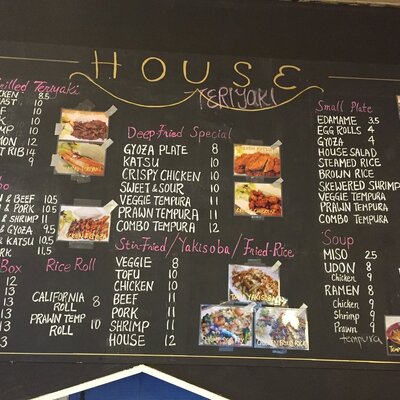 HOUSE
TERIYAKI
Grilled Teriyaki
CKEN 8.5
AST 10
F 10
K 10
MP 10
MON 12
T RIB 14
9
N & BEEF 10.5
N & PORK 10.5
& SHRIMP 11
& GYOZA 9.5
N & KATSU 10.5
RK 11.5
Box
12
13
13
13
13
Rice Roll
CALIFORNIA ROLL 8
PRAWN TEMP ROLL 10
Deep-Fried Special
GYOZA PLATE 8
KATSU 10
CRISPY CHICKEN 10
SWEET & SOUR 10
VEGGIE TEMPURA 11
PRAWN TEMPURA 11
COMBO TEMPURA 12
Stir-Fried/Yakisoba/Fried-Rice
VEGGIE 8
TOFU 10
CHICKEN 10
BEEF 11
PORK 11
SHRIMP 11
HOUSE 12
Small Plate
EDAMAME 3.5
EGG ROLLS 4
GYOZA 4
HOUSE SALAD
STEAMED RICE
BROWN RICE
SKEWERED SHRIMP
VEGGIE TEMPURA
PRAWN TEMPURA
COMBO TEMPURA
Soup
MISO 2.5
UDON 8
Chicken 9
RAMEN 8
Chicken 9
Shrimp 9
Prawn 9
tempura